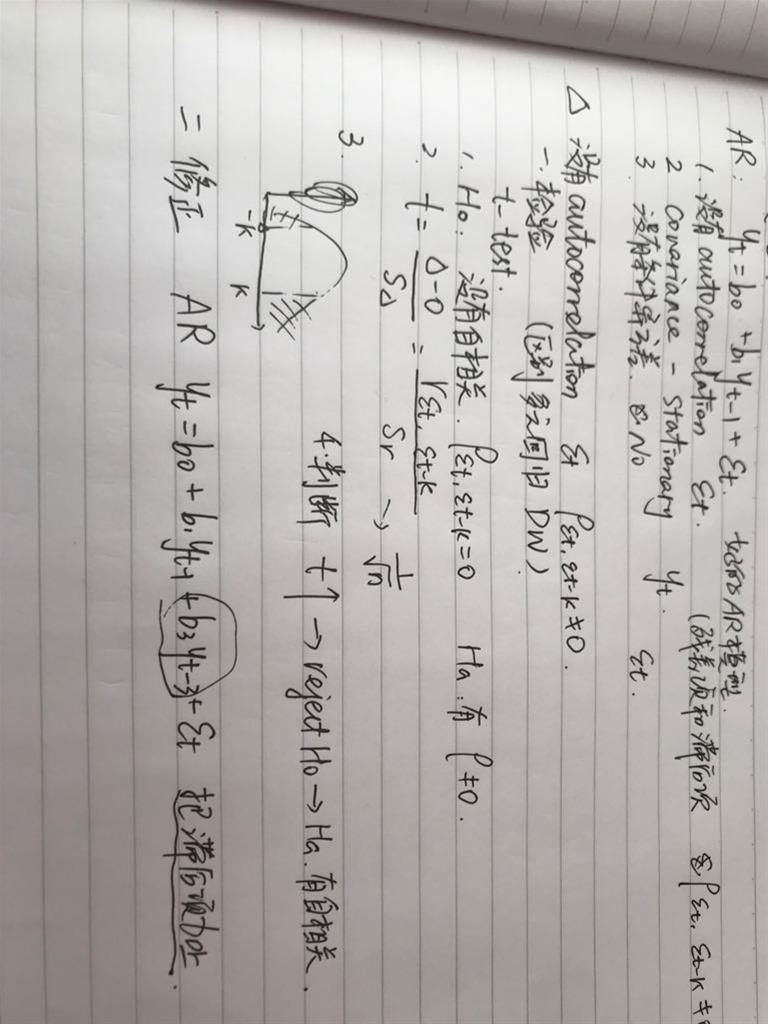 AR: yt = b0 + b1 yt-1 + εt. AR模型.
1. 没有autocorrelation εt. (残差项和滞后项 ρεt, εt-k ≠
2 covariance - stationary yt.
3. 没有条件异方差. No εt.
△ 没有autocorrelation εt ρεt, εt-k ≠ 0.
一. 检验 (区别多元回归 DW)
t-test.
1. H0: 没有自相关. ρεt, εt-k = 0 Ha: 有 ρ ≠ 0.
2. t = (△ - 0) / S△ = rεt, εt-k / Sr → 1/√n
3. -k k
4. 判断 t↑ → reject H0 → Ha. 有自相关.
二 修正 AR yt = b0 + b1 yt-1 + b3 yt-3 + εt 把滞后项加上.